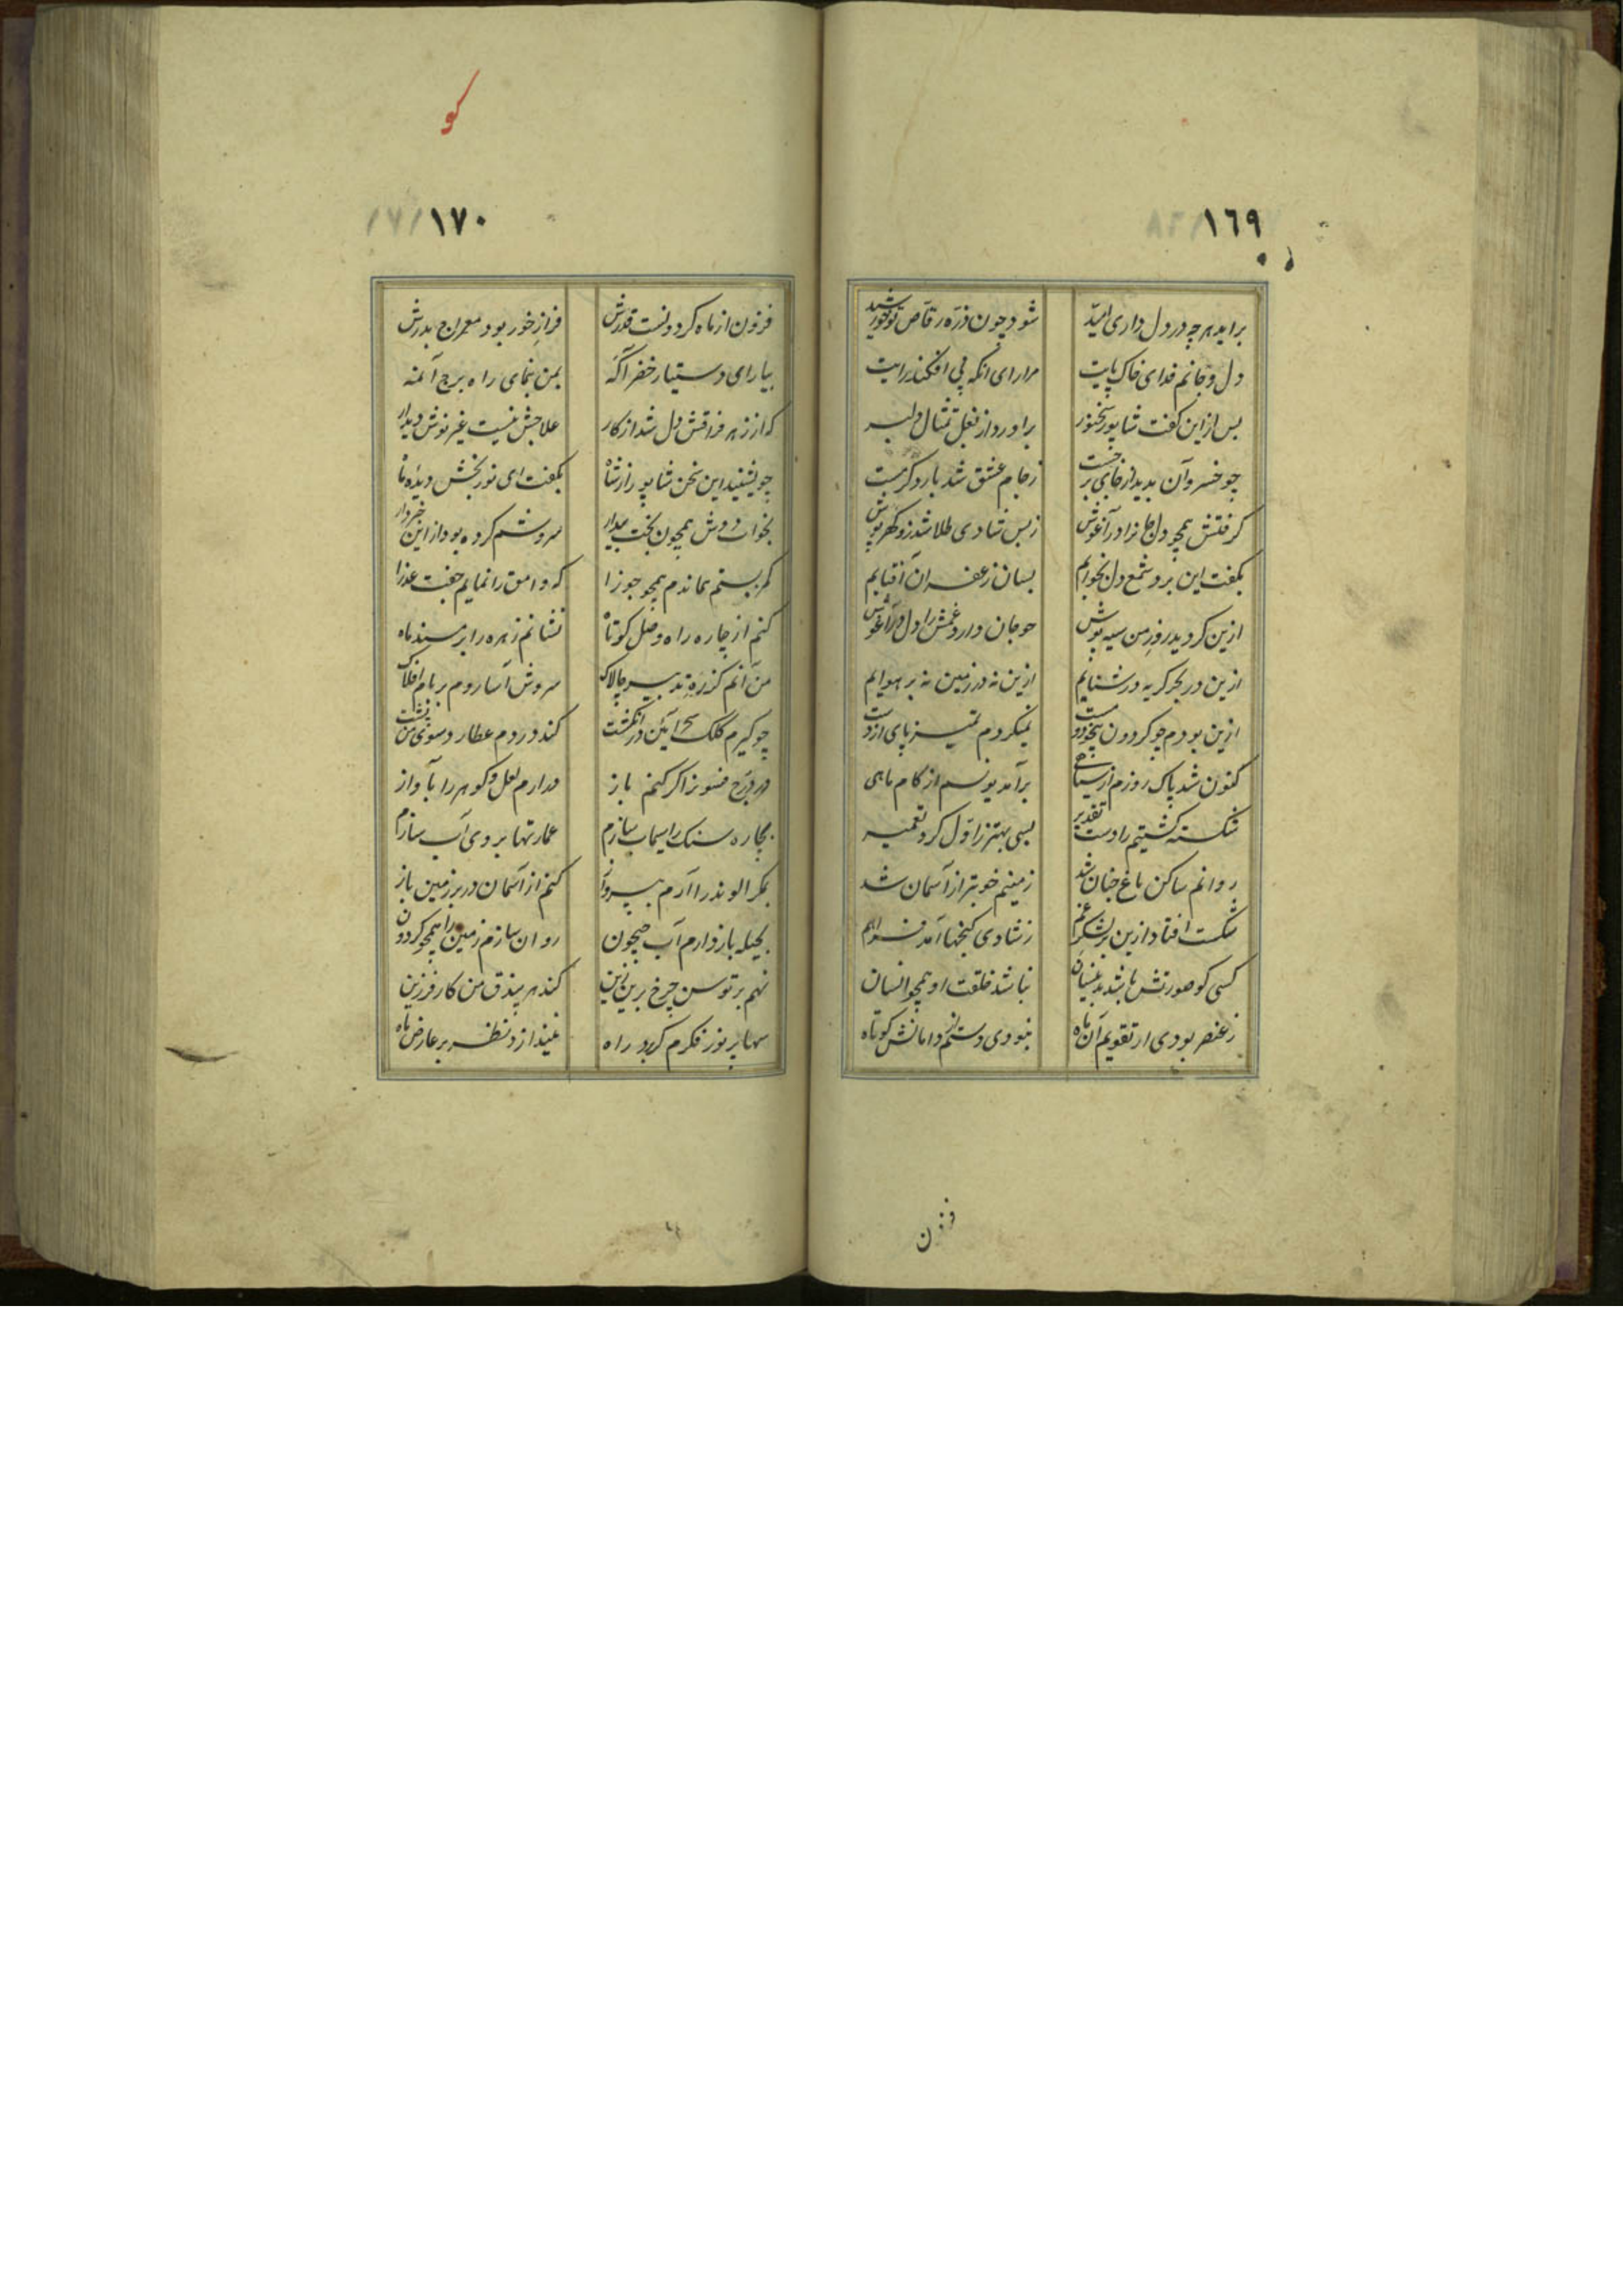 ١٦٩
براید هرچه در دل داری امید
شود چون ذره رقاص تو خورشید
دل و جانم فدای خاک پایت
مرا رای انکه پی افکند رایت
بس از این گفت شاپور سخنور
براورد از بغل تمثال دلبر
چو خسرو آن بدید از جای برجست
ز جام عشق شد بار دکر مست
گرفتش همچو دل جانرا در آغوش
ز بس شادی طلا شد زو گهرپوش
بگفت این برد شمع دل بخوابم
بسان زعفران افتابم
ازین گردید روز من سیه پوش
چو جان دارد غمش را دل در آغوش
ازین در بحر گریه در شنایم
ازین نه در زمین نه بر هوایم
ازین بودم چو گردون بیخود و مست
نمیکردم تمیز پای از دست
کنون شد پاک روزم از سیاهی
برآمد یونسم از کام ماهی
شکسته کشتیم را دست تقدیر
بسی بهتر ز اول کرد تعمیر
روانم ساکن باغ جنان شد
زمینم خوبتر از آسمان شد
شکست افتاد ازین بر لشکر غم
ز شادی گنجها آمد فراهم
کسی کو صورتش باشد بدینسان
نباشد خلقت او همچو انسان
ز عنصر بودی ار تقویم آن ماه
نبودی دستم از دامانش کوتاه
فزن
کو
١٧٠
فزون از ماه گردونست قدرش
فراز خور بود معراج بدرش
بیا رای دستیار خضر آگه
بمن بنمای راه برج آنمه
که از زهر فراقش دل شد از کار
علاجش نیست غیر نوش دیدار
چو بشنید این سخن شاپور از شاه
بگفت ای نور بخش دیده ما
بخواب دوش همچون بخت بیدار
سروشم کرده بود از این خبردار
کمر بستم بماندم همچو جوزا
که وامق را نمایم جفت عذرا
کنم از چاره راه وصل کوتاه
نشانم زهره را بر مسند ماه
من آنم کز ره تدبیر چالاک
سروش آسا روم بر بام افلاک
چو گیرم کلک سحر آئین در انگشت
کند در دم عطارد سوی من پشت
در درج فسونرا گر کنم باز
درارم لعل و گوهر را بآواز
بچاره سنک را سیماب سازم
عمارتها بروی آب سازم
بمکر الوند را آرم بپرواز
کنم از آسمان در بر زمین باز
بحیله باز دارم آب جیحون
روان سازم زمین را همچو گردون
نهم بر توسن چرخ برین زین
کند هر بیذق من کار فرزین
سها بر نور فکرم کر برد راه
نیندازد نظر بر عارض ماه